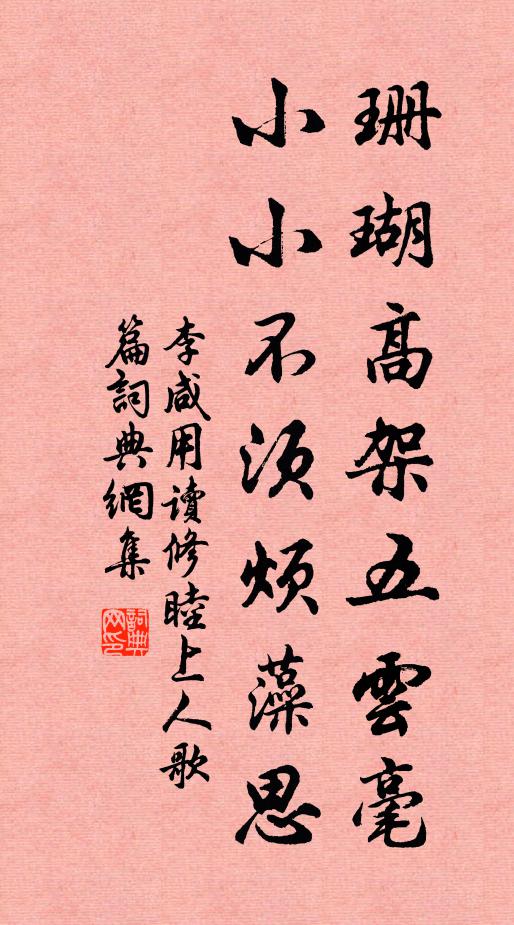 珊瑚高架五雲毫
小小不須煩藻思
李咸用讀修睦上人歌
篇詞典網集
詞典
网印